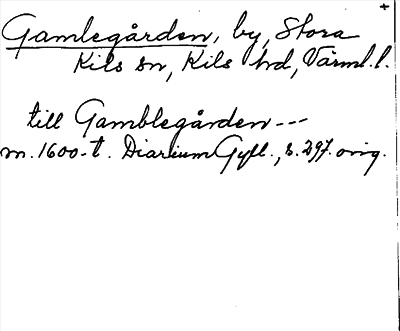 +
Gamlegården, by, Stora
Kils sn, Kils hd, Värml. l.
till Gamblegården ---
m. 1600-t. Diarium Gyll., s. 297. orig.